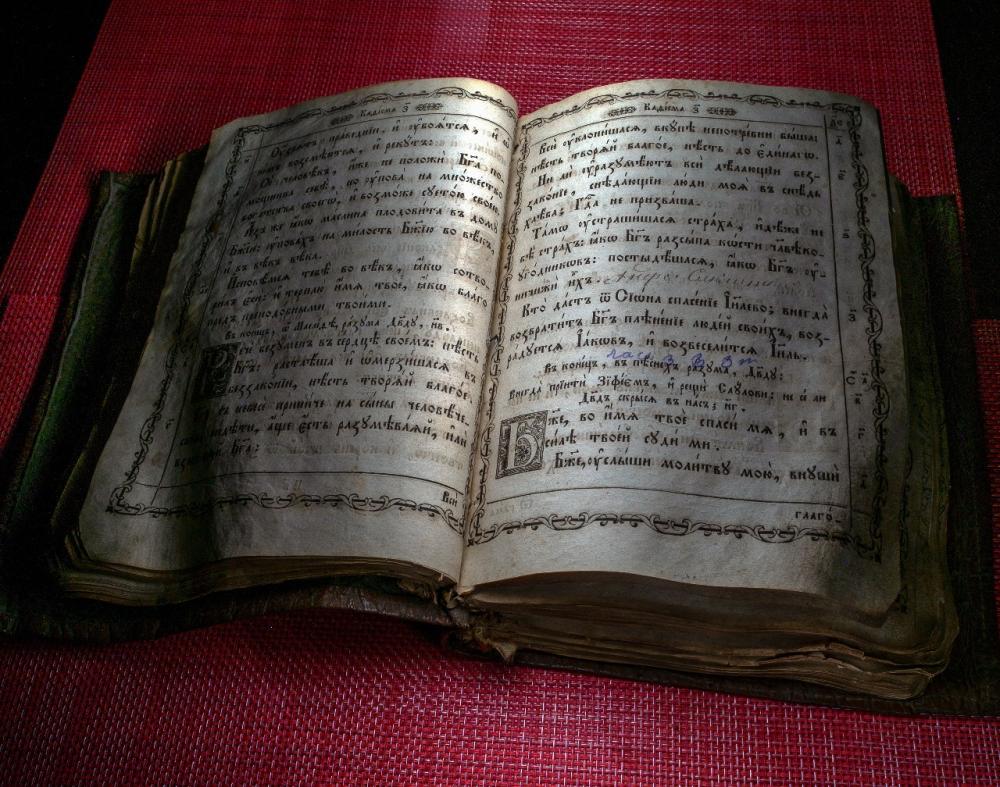 Каѳісма з҃
Оу҆́зрѧтъ прaведнїи, и҆ оу҆боѧ́тсѧ, и҆ ѡ҆
возсмѣю́тсѧ, и҆ рекꙋ́тъ:
Сѐ человѣ́къ, и҆́же не положѝ Бг҃а по-
мо́щника себѣ̀, но оу҆пова̀ на мно́жество
бога́тства своегѡ̀, и҆ возмо́же сꙋето́ю свое́ю.
А҆́зъ же ꙗ҆́кѡ ма́слина плодови́та въ домꙋ̀
Бж҃їи: оу҆пова́хъ на ми́лость Бж҃їю во вѣ́къ,
и҆ въ вѣ́къ вѣ́ка.
И҆сповѣ́мсѧ тебѣ̀ во вѣ́къ, ꙗ҆́кѡ сотво-
ри́лъ є҆сѝ: и҆ терплю̀ и҆́мѧ твоѐ, ꙗ҆́кѡ бла́го
пред̾ преподо́бными твои́ми.
Въ коне́цъ, ѡ҆ Маеле́ѳѣ, ра́зꙋма Дв҃дꙋ, н҃в.
Речѐ безꙋ́менъ въ се́рдцѣ свое́мъ: нѣ́сть
Бг҃ъ: растлѣ́ша и҆ ѡ҆мерзи́шасѧ въ
беззако́нїи, нѣ́сть творѧ́й благо́е.
съ небесѐ прини́че на сы́ны человѣ́че-
скїѧ ви́дѣти, а҆́ще є҆́сть разꙋмѣва́ѧй, и҆лѝ
взыска́ѧй Бг҃а:
Всѝ
Каѳісма з҃
Всѝ оу҆клони́шасѧ, вкꙋ́пѣ непотре́бни бы́ша:
нѣ́сть творѧ́й благо́е, нѣ́сть до є҆ди́нагѡ.
Ни ли̂ оу҆разꙋмѣ́ютъ всѝ дѣ́лающїи без-
зако́нїе, снѣда́ющїи лю́ди моѧ̑ въ снѣ́дь
хлѣ́ба; Гд҇а не призва́ша.
Та́мѡ оу҆страши́шасѧ стра́ха, и҆дѣ́же не
бѣ̀ стра́хъ: ꙗ҆́кѡ Бг҃ъ разсы́па кѡ́сти человѣко-
оугѡ́дникѡвъ: постыдѣ́шасѧ, ꙗ҆́кѡ Бг҃ъ оу҆-
ничижѝ и҆́хъ.
Кто̀ да́стъ ѿ Сїѡ́на спасе́нїе І҆и҃лево; внегда̀
возврати́тъ Бг҃ъ плѣне́нїе люде́й свои́хъ, воз-
ра́дꙋетсѧ І҆а́кѡвъ, и҆ возвесели́тсѧ І҆и҃ль.
Въ коне́цъ, въ пѣ́снехъ ра́зꙋма, Дв҃дꙋ:
Внегда̀ прїитѝ Зїфе́ємъ, и҆ рещѝ Саꙋ́лови: не сѐ ли
Дв҃дъ скры́сѧ въ на́съ; н҃г.
Бж҃е, во и҆́мѧ твоѐ спаси́ мѧ, и҆ въ
си́лѣ твое́й сꙋди́ ми.
Бж҃е, оу҆слы́ши моли́твꙋ мою̀, внꙋшѝ
глаго-